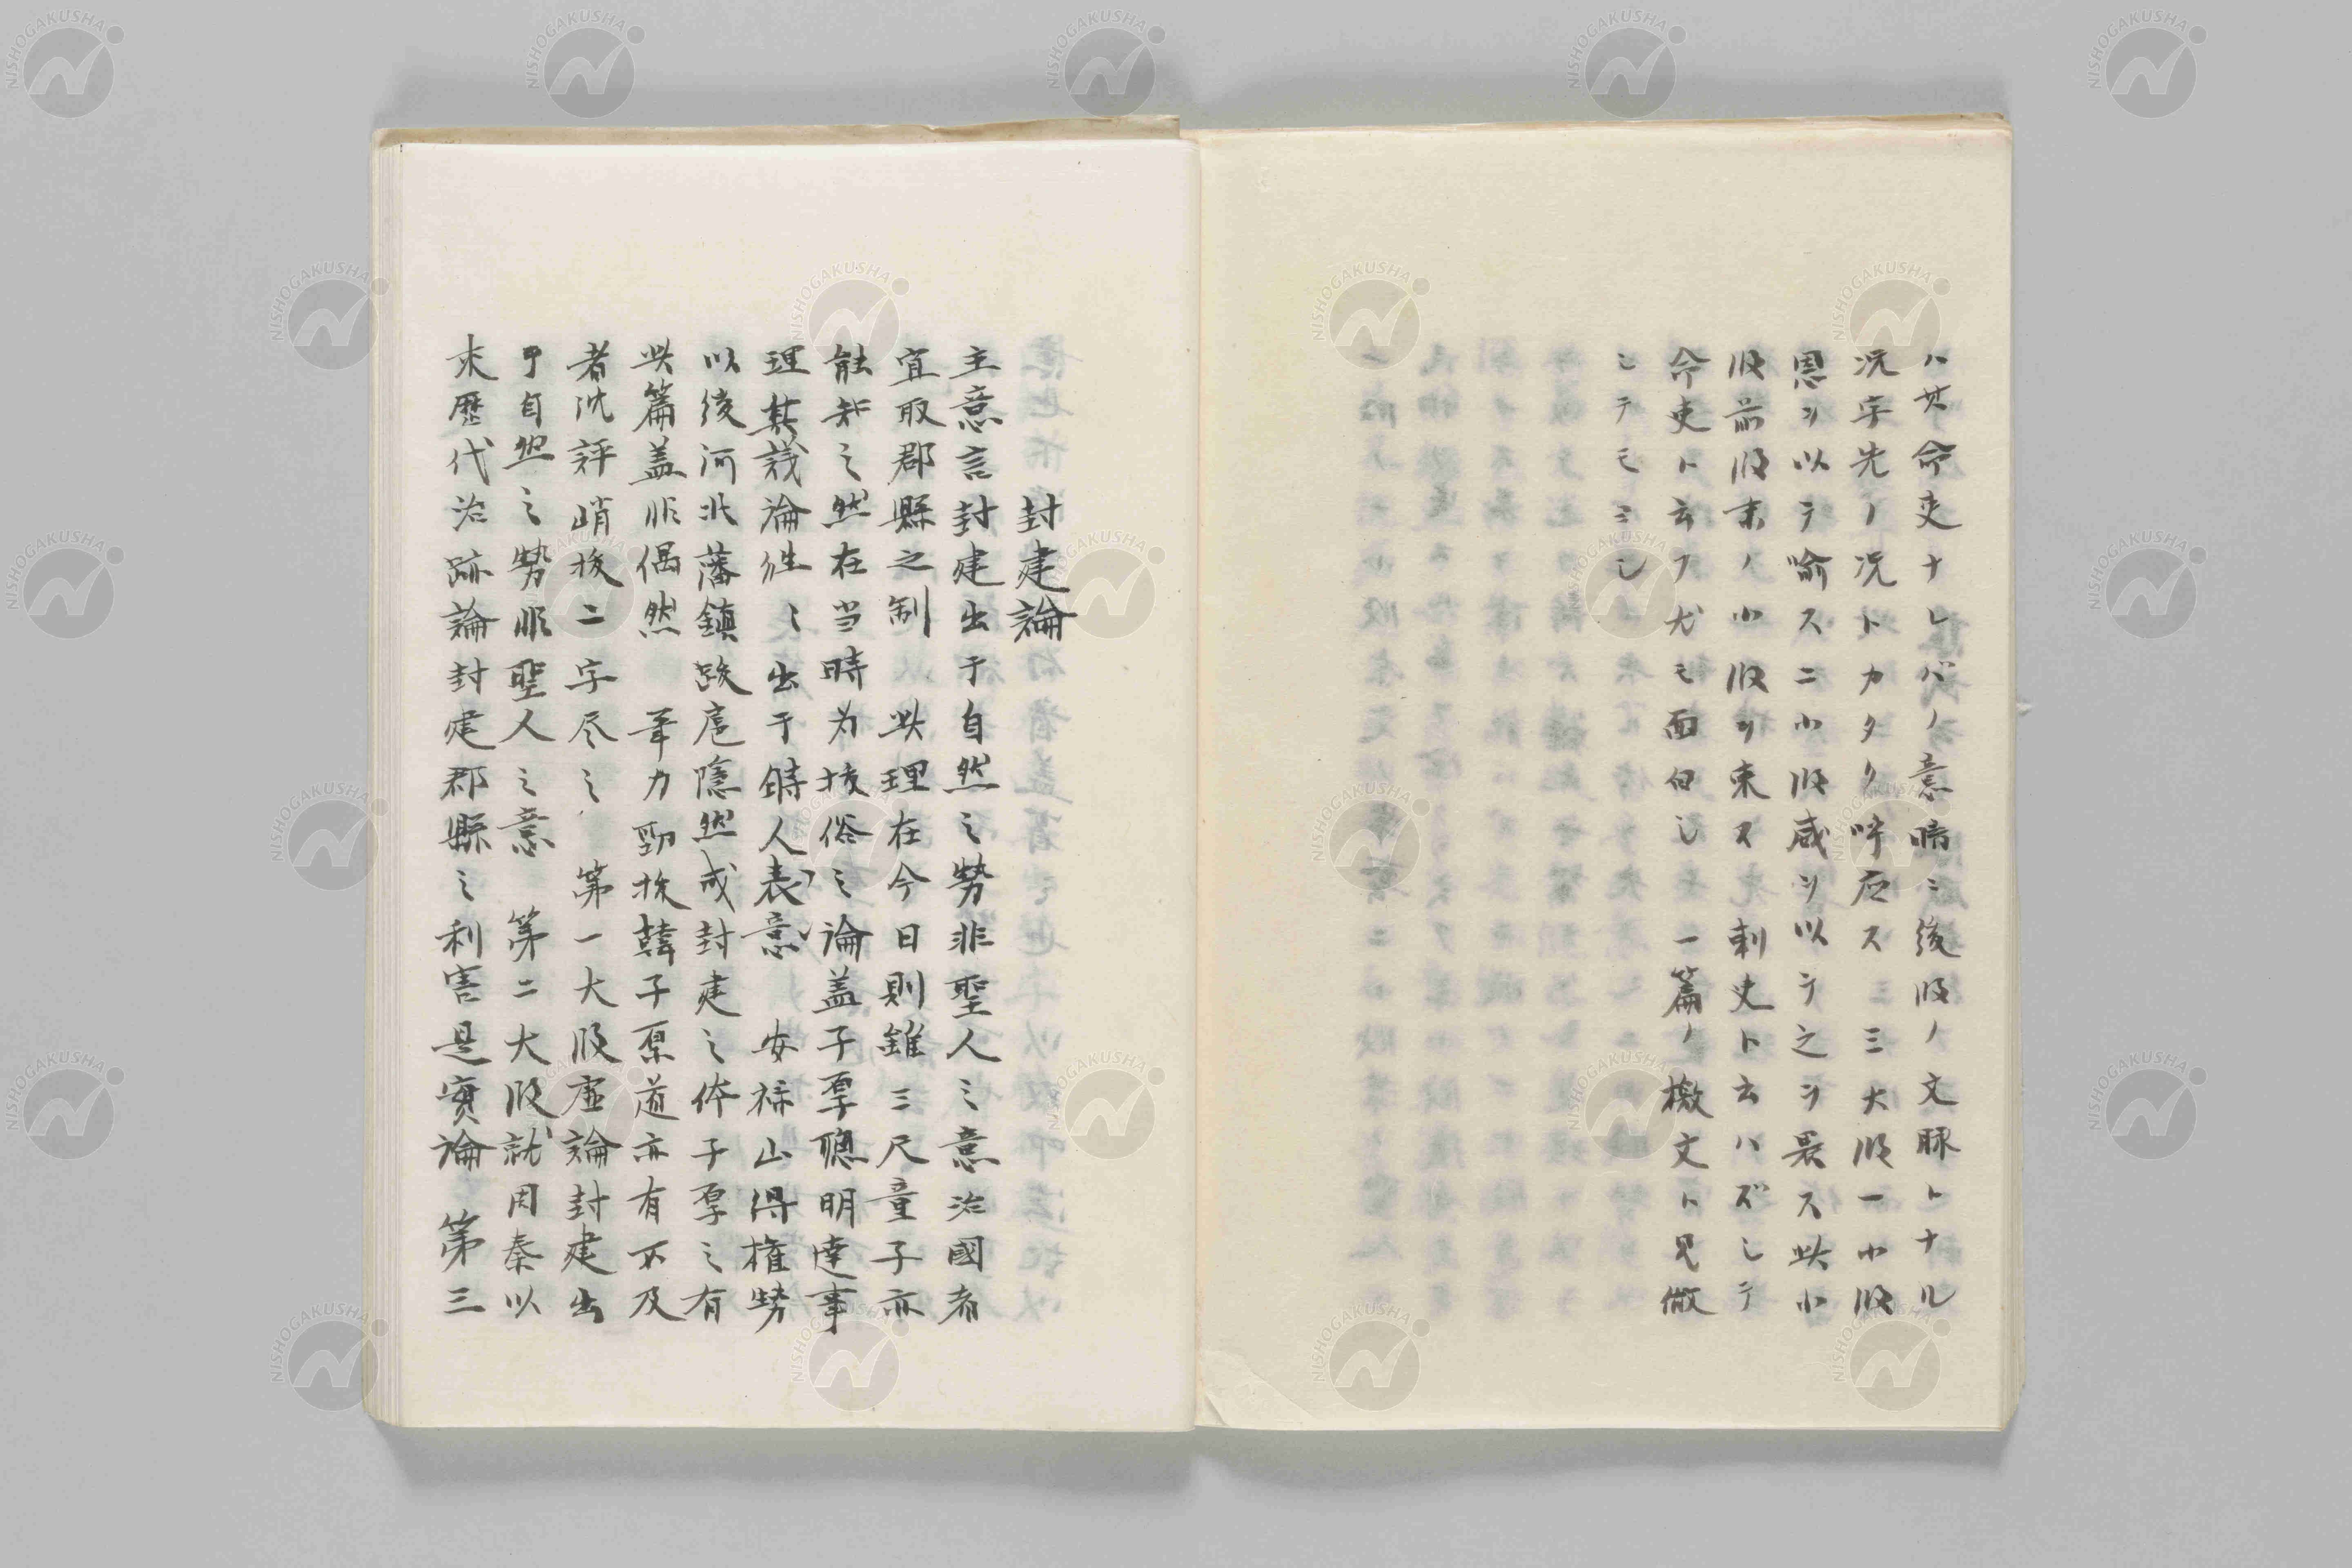 ハ其命吏ナレバノ意暗ニ後段ノ文脉トナル
况字先ノ况トカタク呼応ス三大段一小段
恩ヲ以テ喩スニ小段威ヲ以テ之ヲ畏ス此小
段前段末ノ小段ヲ束ス刺史ト云ハズシテ
命吏ト云フ尤モ面白シ一篇ノ檄文ト見做
シテモヨシ
封建論
主意言封建出于自然之勢非聖人之意治國者
宜取郡縣之制 此理在今日則雖三尺童子亦
能知之然在当時为抜俗之論蓋子厚聰明達事
理其議論往々出于鋳人表意 安禄山得権勢
以後河北藩鎮跋扈隠然成封建之体子厚之有
此篇蓋非偶然 筆力勁抜韓子原道亦有不及
者沈評峭抜二字尽之 第一大段虚論封建出
于自然之勢非聖人之意 第二大段就周秦以
来歴代治跡論封建郡縣之利害是實論 第三
NISHOGAKUSHA